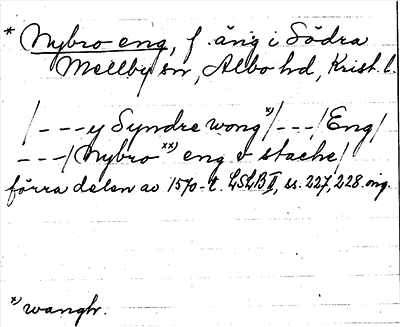 * Nybro eng, f. äng i Södra
Mellby sn, Albo hd, Krist. l.
/---y Syndre wong x)/---/Eng/
---/Nybro xx) eng v stache/
förra delen av 1570-t. LSLB II, ss. 227, 228. orig.
x) wangh.